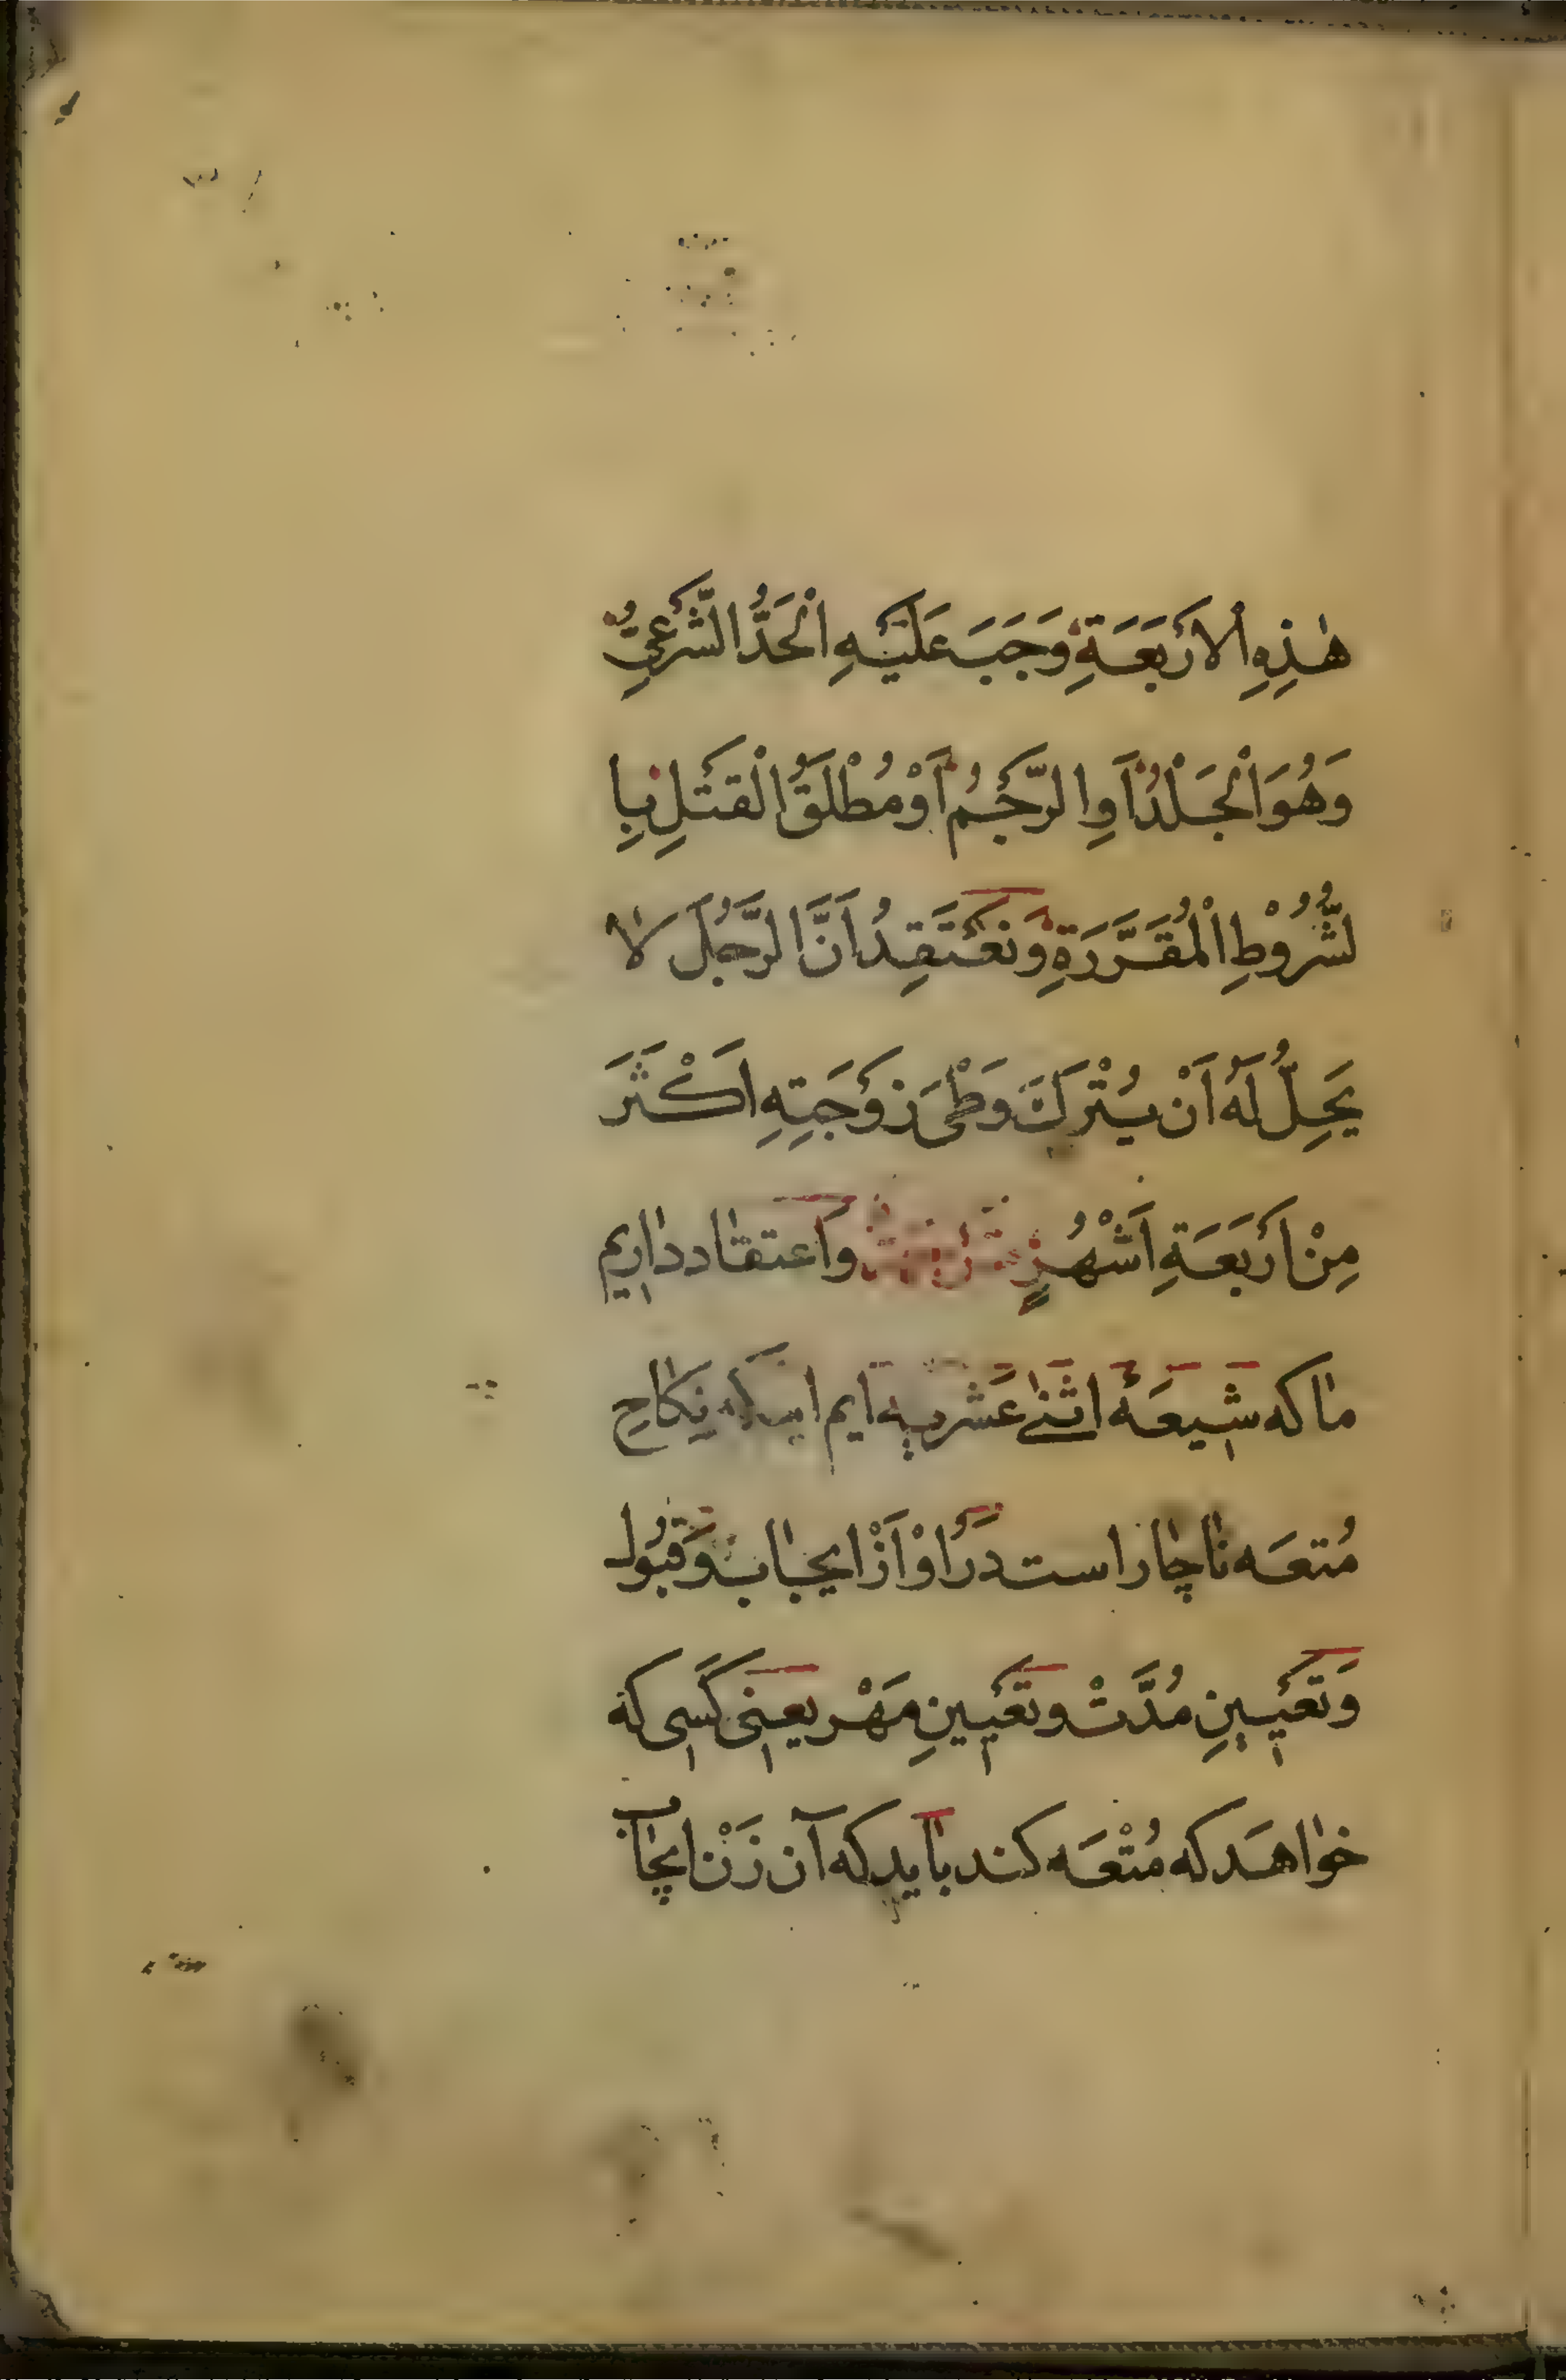 هٰذِهِ الْاَرْبَعَةِ وَجَبَ عَلَيْهِ الْحَدُّ الشَّرْعِيُّ
وَهُوَ الْجَلْدُ اَوِ الرَّجْمُ اَوْ مُطْلَقُ الْقَتْلِ بِا
لشُّرُوْطِ الْمُقَرَّرَةِ وَنَعْتَقِدُ اَنَّ الرَّجُلَ لَا
يَحِلُّ لَهُ اَنْ يَتْرُكَ وَطْىَ زَوْجَتِهِ اَكْثَرَ
مِنْ اَرْبَعَةِ اَشْهُرٍ وَاعتقاد داریم
ما که شیعَهٔ اثنٰے عَشْریه ایم اینکه نِکاحِ
مُتعَه ناچار است دَرْ اوْ اَزْ ایجاب وَقبُول
وَ تَعْیینِ مُدَّتْ و تَعْیینِ مَهْر یعنی کَسی که
خواهَد که مُتْعَه کند باید که آن زَنْ ایجاب